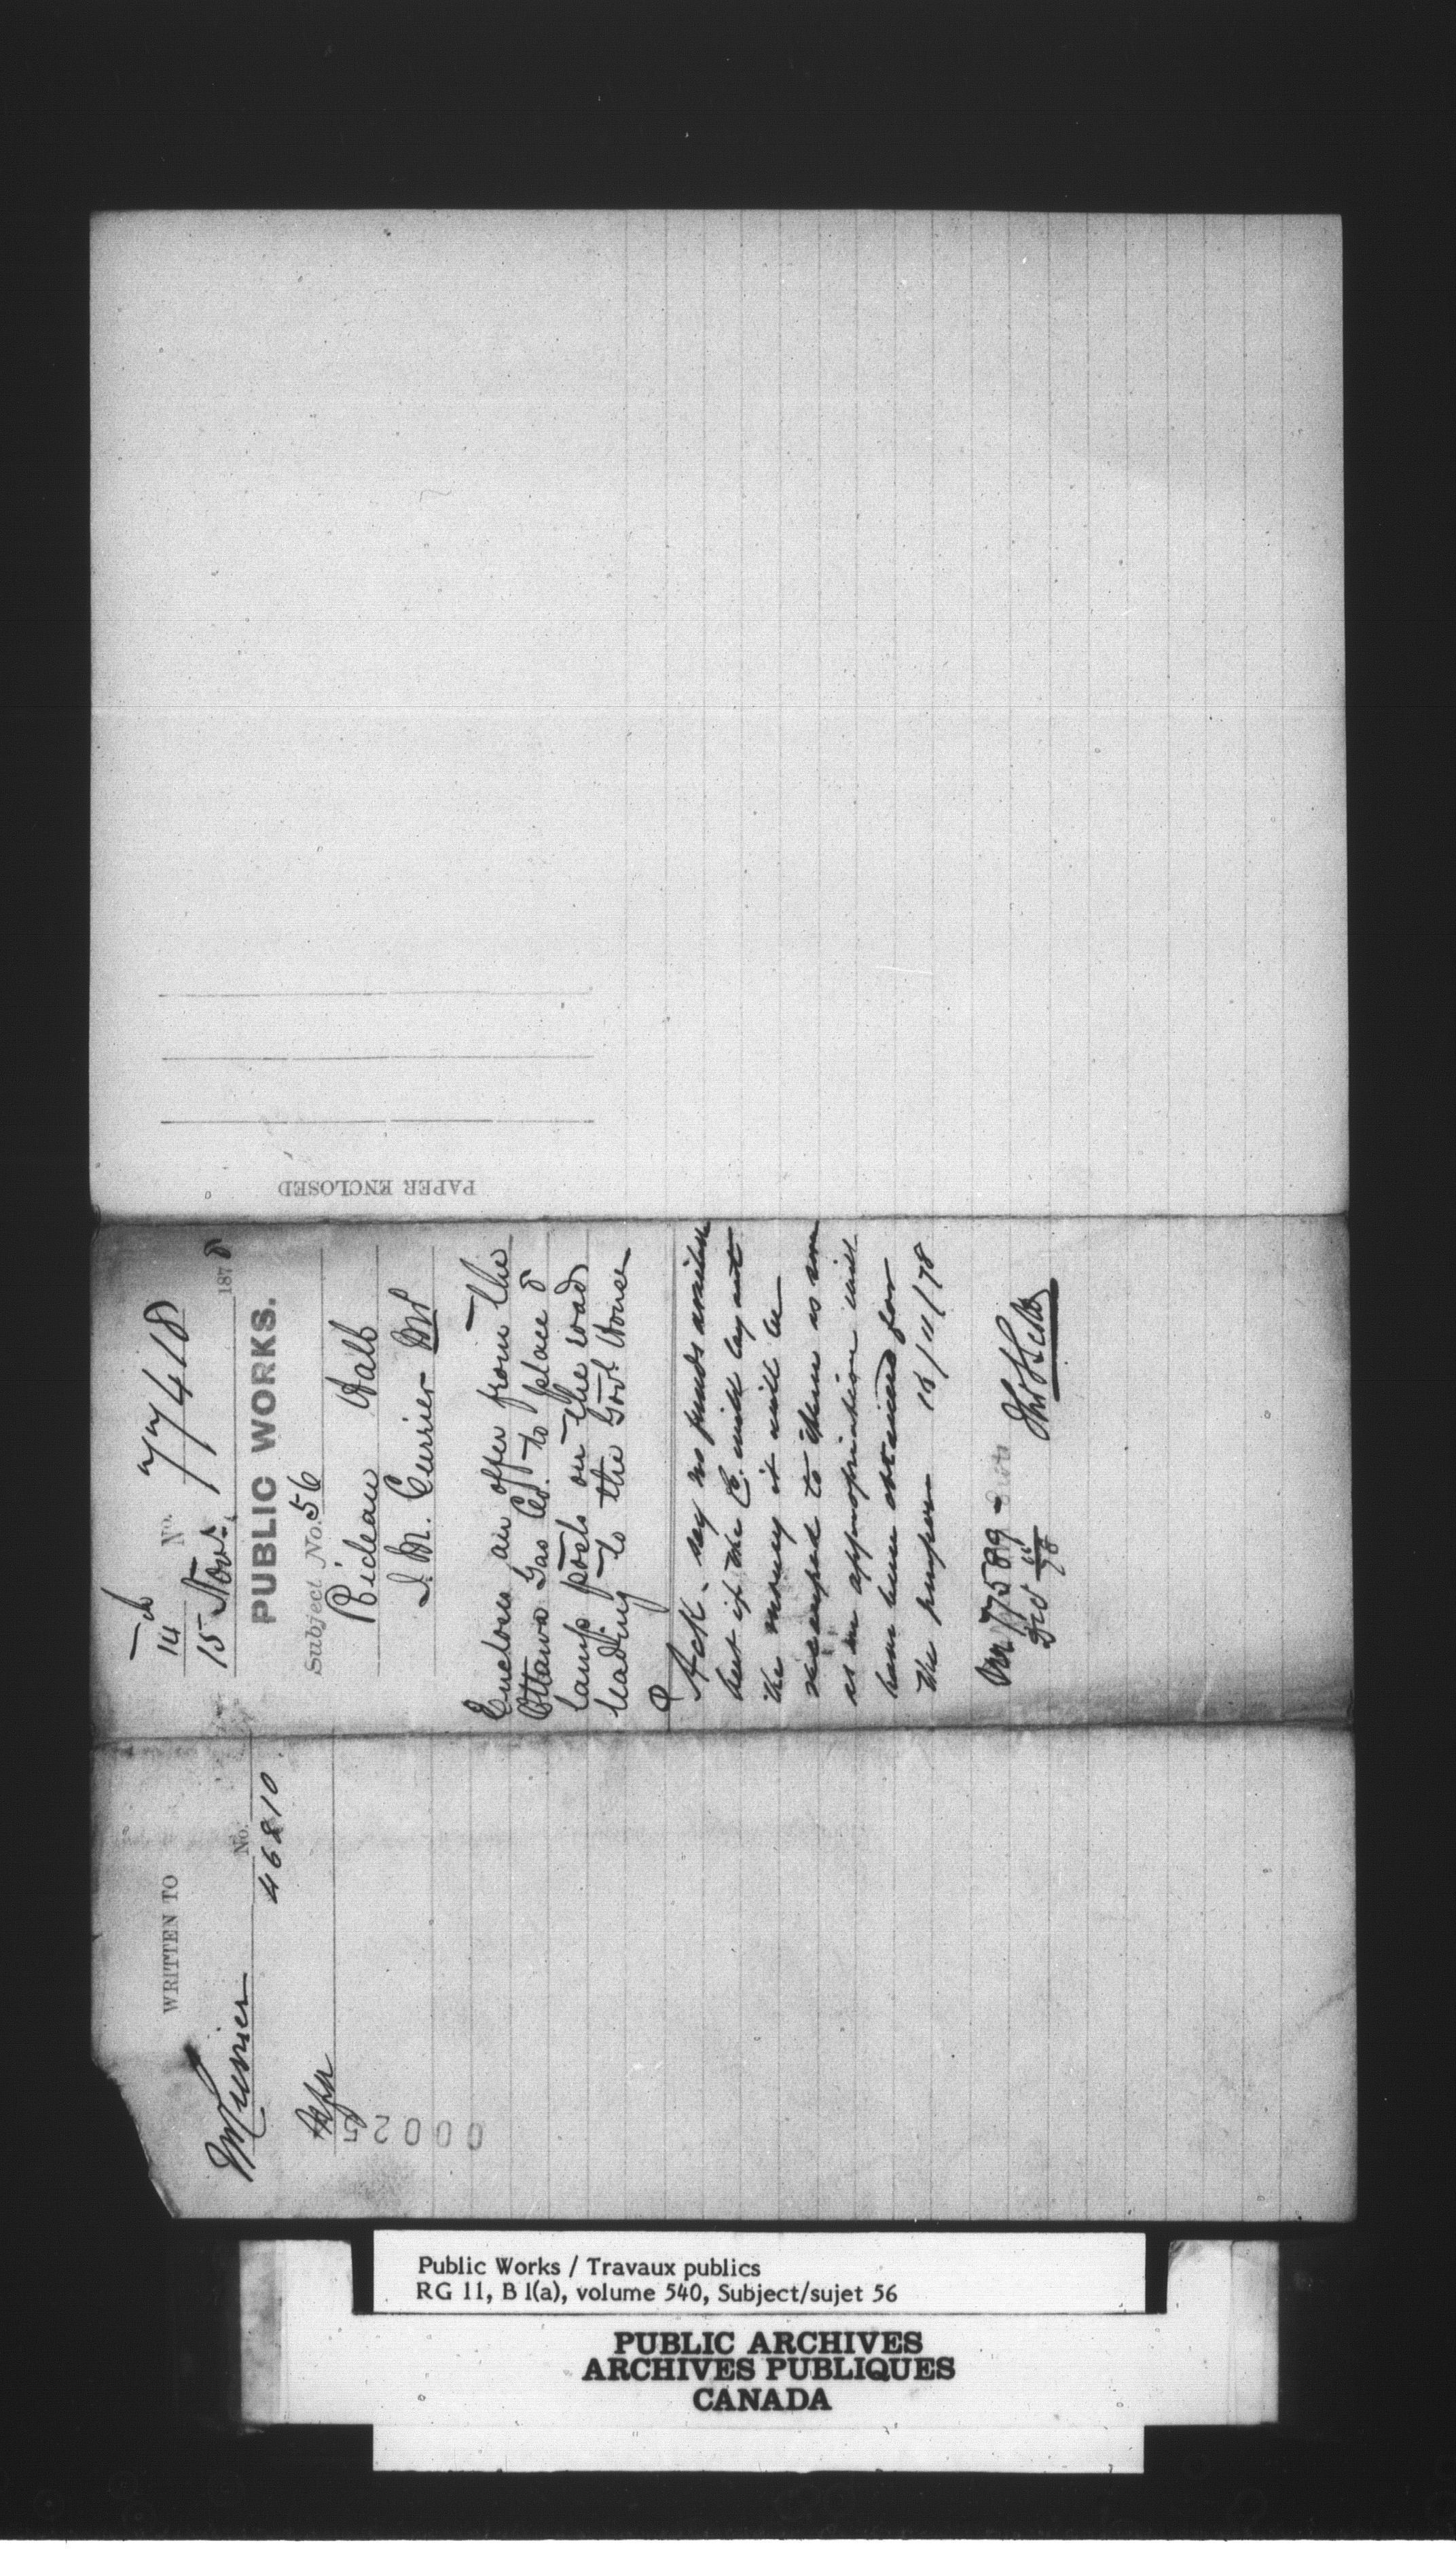 WRITTEN TO
No.
46810
00025
14
No. 77418
15 Novr. 1878
PUBLIC WORKS.
Subject No. 56
Rideau Hall
J. M. Currier MP
Encloses an offer from the
Ottawa Gas Co. to place 8
lamp posts on the road
leading to the Govt House
Ack. say no funds available
but if the Co. will lay out
the money it will be
recouped to them as soon
as an appropriation will
have been obtained for
the purpose 16/11/78
77589
PAPER ENCLOSED
Public Works / Travaux publics
RG 11, B 1(a), volume 540, Subject/sujet 56
PUBLIC ARCHIVES
ARCHIVES PUBLIQUES
CANADA